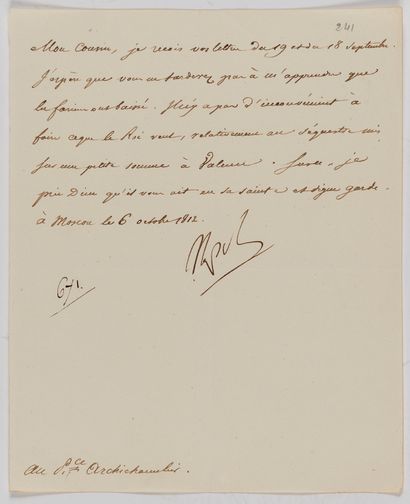 241
Mon Cousin, je reçois vos lettres du 19 et du 18 Septembre.
J'espère que vous ne tarderez pas à m'apprendre que
les farines ont baissé. Il n'y a pas d'inconvénient à
faire ce que le Roi veut, relativement au séquestre mis
sur une petite somme à Valence. Sur ce, je
prie Dieu qu'il vous ait en sa sainte et digne garde.
à Moscou le 6 octobre 1812.
Np
671.
Au P.ce Archichancelier.